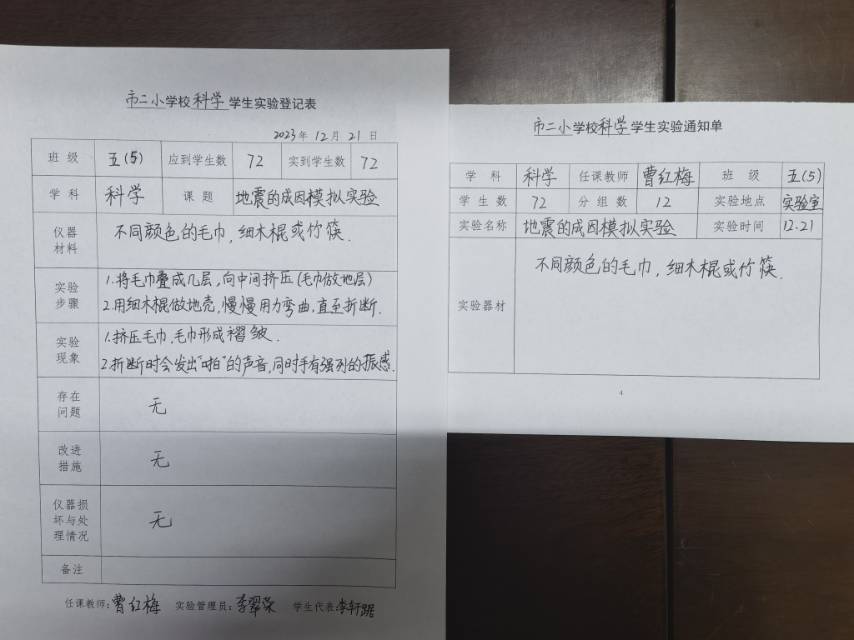 市二小学校科学学生实验登记表
2023年12月21日
班级 五(5) 应到学生数 72 实到学生数 72
学科 科学 课题 地震的成因模拟实验
仪器材料 不同颜色的毛巾,细木棍或竹筷.
实验步骤 1.将毛巾叠成几层,向中间挤压(毛巾做地层)
2.用细木棍做地壳,慢慢用力弯曲,直至折断.
实验现象 1.挤压毛巾,毛巾形成褶皱.
2.折断时会发出"啪"的声音,同时手有强烈的振感.
存在问题 无
改进措施 无
仪器损坏与处理情况 无
备注
任课教师:曹红梅 实验管理员:李翠荣 学生代表:李轩
市二小学校科学学生实验通知单
学科 科学 任课教师 曹红梅 班级 五(5)
学生数 72 分组数 12 实验地点 实验室
实验名称 地震的成因模拟实验 实验时间 12.21
实验器材 不同颜色的毛巾,细木棍或竹筷.
4